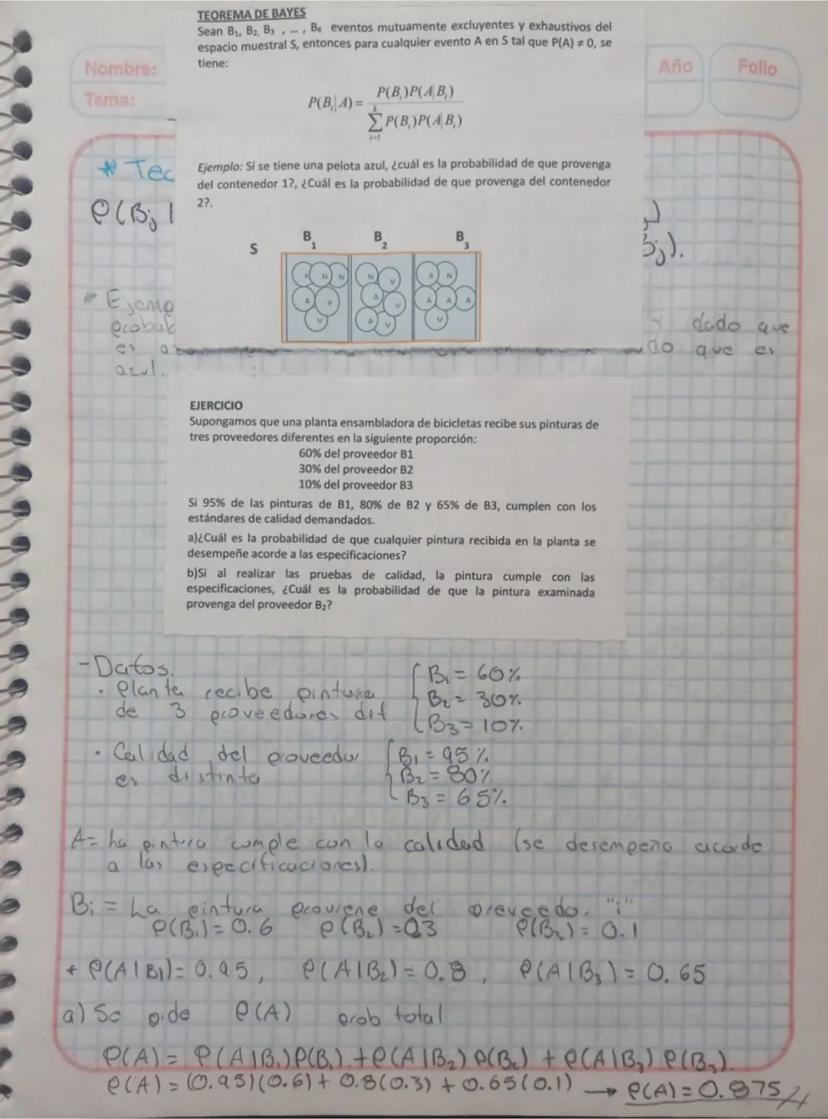 TEOREMA DE BAYES
Sean B₁, B₂, B₃ , ... , Bₖ eventos mutuamente excluyentes y exhaustivos del
espacio muestral S, entonces para cualquier evento A en S tal que P(A) ≠ 0, se
tiene:
Nombre:
Año
Folio
Tema:
P(Bᵢ|A) = P(Bᵢ)P(A|Bᵢ) / ∑ᵢ₌₁ᵏ P(Bᵢ)P(A|Bᵢ)
* Teo
Ejemplo: Si se tiene una pelota azul, ¿cuál es la probabilidad de que provenga
del contenedor 1?, ¿Cuál es la probabilidad de que provenga del contenedor
2?.
P(Bj |
)
Bj).
S B₁ B₂ B₃
N N N N V A N
A V A V A A A
V A V V
* Ejemp
probab
dado que
es a
do que es
azul.
EJERCICIO
Supongamos que una planta ensambladora de bicicletas recibe sus pinturas de
tres proveedores diferentes en la siguiente proporción:
60% del proveedor B1
30% del proveedor B2
10% del proveedor B3
Si 95% de las pinturas de B1, 80% de B2 y 65% de B3, cumplen con los
estándares de calidad demandados.
a)¿Cuál es la probabilidad de que cualquier pintura recibida en la planta se
desempeñe acorde a las especificaciones?
b)Si al realizar las pruebas de calidad, la pintura cumple con las
especificaciones, ¿Cuál es la probabilidad de que la pintura examinada
provenga del proveedor B₂?
- Datos.
• Planta recibe pintura
de 3 proveedores dif
B₁ = 60%
B₂ = 30%
B₃ = 10%
• Calidad del proveedor
es distinta
B₁ = 95%
B₂ = 80%
B₃ = 65%
A = La pintura cumple con la calidad (se desempeña acorde
a las especificaciones).
Bi = La pintura proviene del proveedor "i"
P(B₁) = 0.6 P(B₂) = 0.3 P(B₃) = 0.1
* P(A|B₁) = 0.95, P(A|B₂) = 0.8, P(A|B₃) = 0.65
a) Se pide P(A) prob total
P(A) = P(A|B₁)P(B₁) + P(A|B₂)P(B₂) + P(A|B₃)P(B₃).
P(A) = (0.95)(0.6) + 0.8(0.3) + 0.65(0.1) → P(A) = 0.875